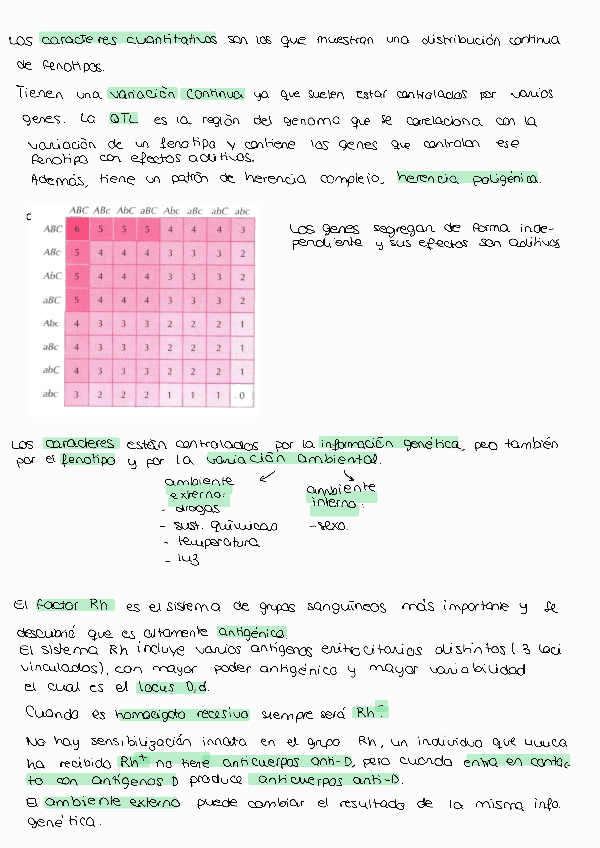 Los caracteres cuantitativos son los que muestran una distribución continua
de fenotipos.
Tienen una variación continua ya que suelen estar controlados por varios
genes. La QTL es la región del genoma que se correlaciona con la
variación de un fenotipo y contiene los genes que controlan ese
fenotipo con efectos aditivos.
Además, tiene un patrón de herencia complejo, herencia poligénica.
c
ABC ABc AbC aBC Abc aBc abC abc
ABC 6 5 5 5 4 4 4 3
ABc 5 4 4 4 3 3 3 2
AbC 5 4 4 4 3 3 3 2
aBC 5 4 4 4 3 3 3 2
Abc 4 3 3 3 2 2 2 1
aBc 4 3 3 3 2 2 2 1
abC 4 3 3 3 2 2 2 1
abc 3 2 2 2 1 1 1 0
Los genes segregan de forma inde-
pendiente y sus efectos son aditivos
Los caracteres están controlados por la información genética, pero también
por el fenotipo y por la variación ambiental.
ambiente
externo:
- drogas
- sust. químicas
- temperatura
- luz
ambiente
interno:
- sexo.
El factor Rh es el sistema de grupos sanguíneos más importante y se
descubrió que es altamente antigénico
El sistema Rh incluye varios antígenos eritrocitarios distintos (3 loci
vinculados), con mayor poder antigénico y mayor variabilidad
el cual es el locus D,d.
Cuando es homocigoto recesivo siempre será Rh⁻.
No hay sensibilización innata en el grupo Rh, un individuo que nunca
ha recibido Rh⁺ no tiene anticuerpos anti-D, pero cuando entra en contac-
to con antígenos D produce anticuerpos anti-D.
El ambiente externo puede cambiar el resultado de la misma info.
genética.